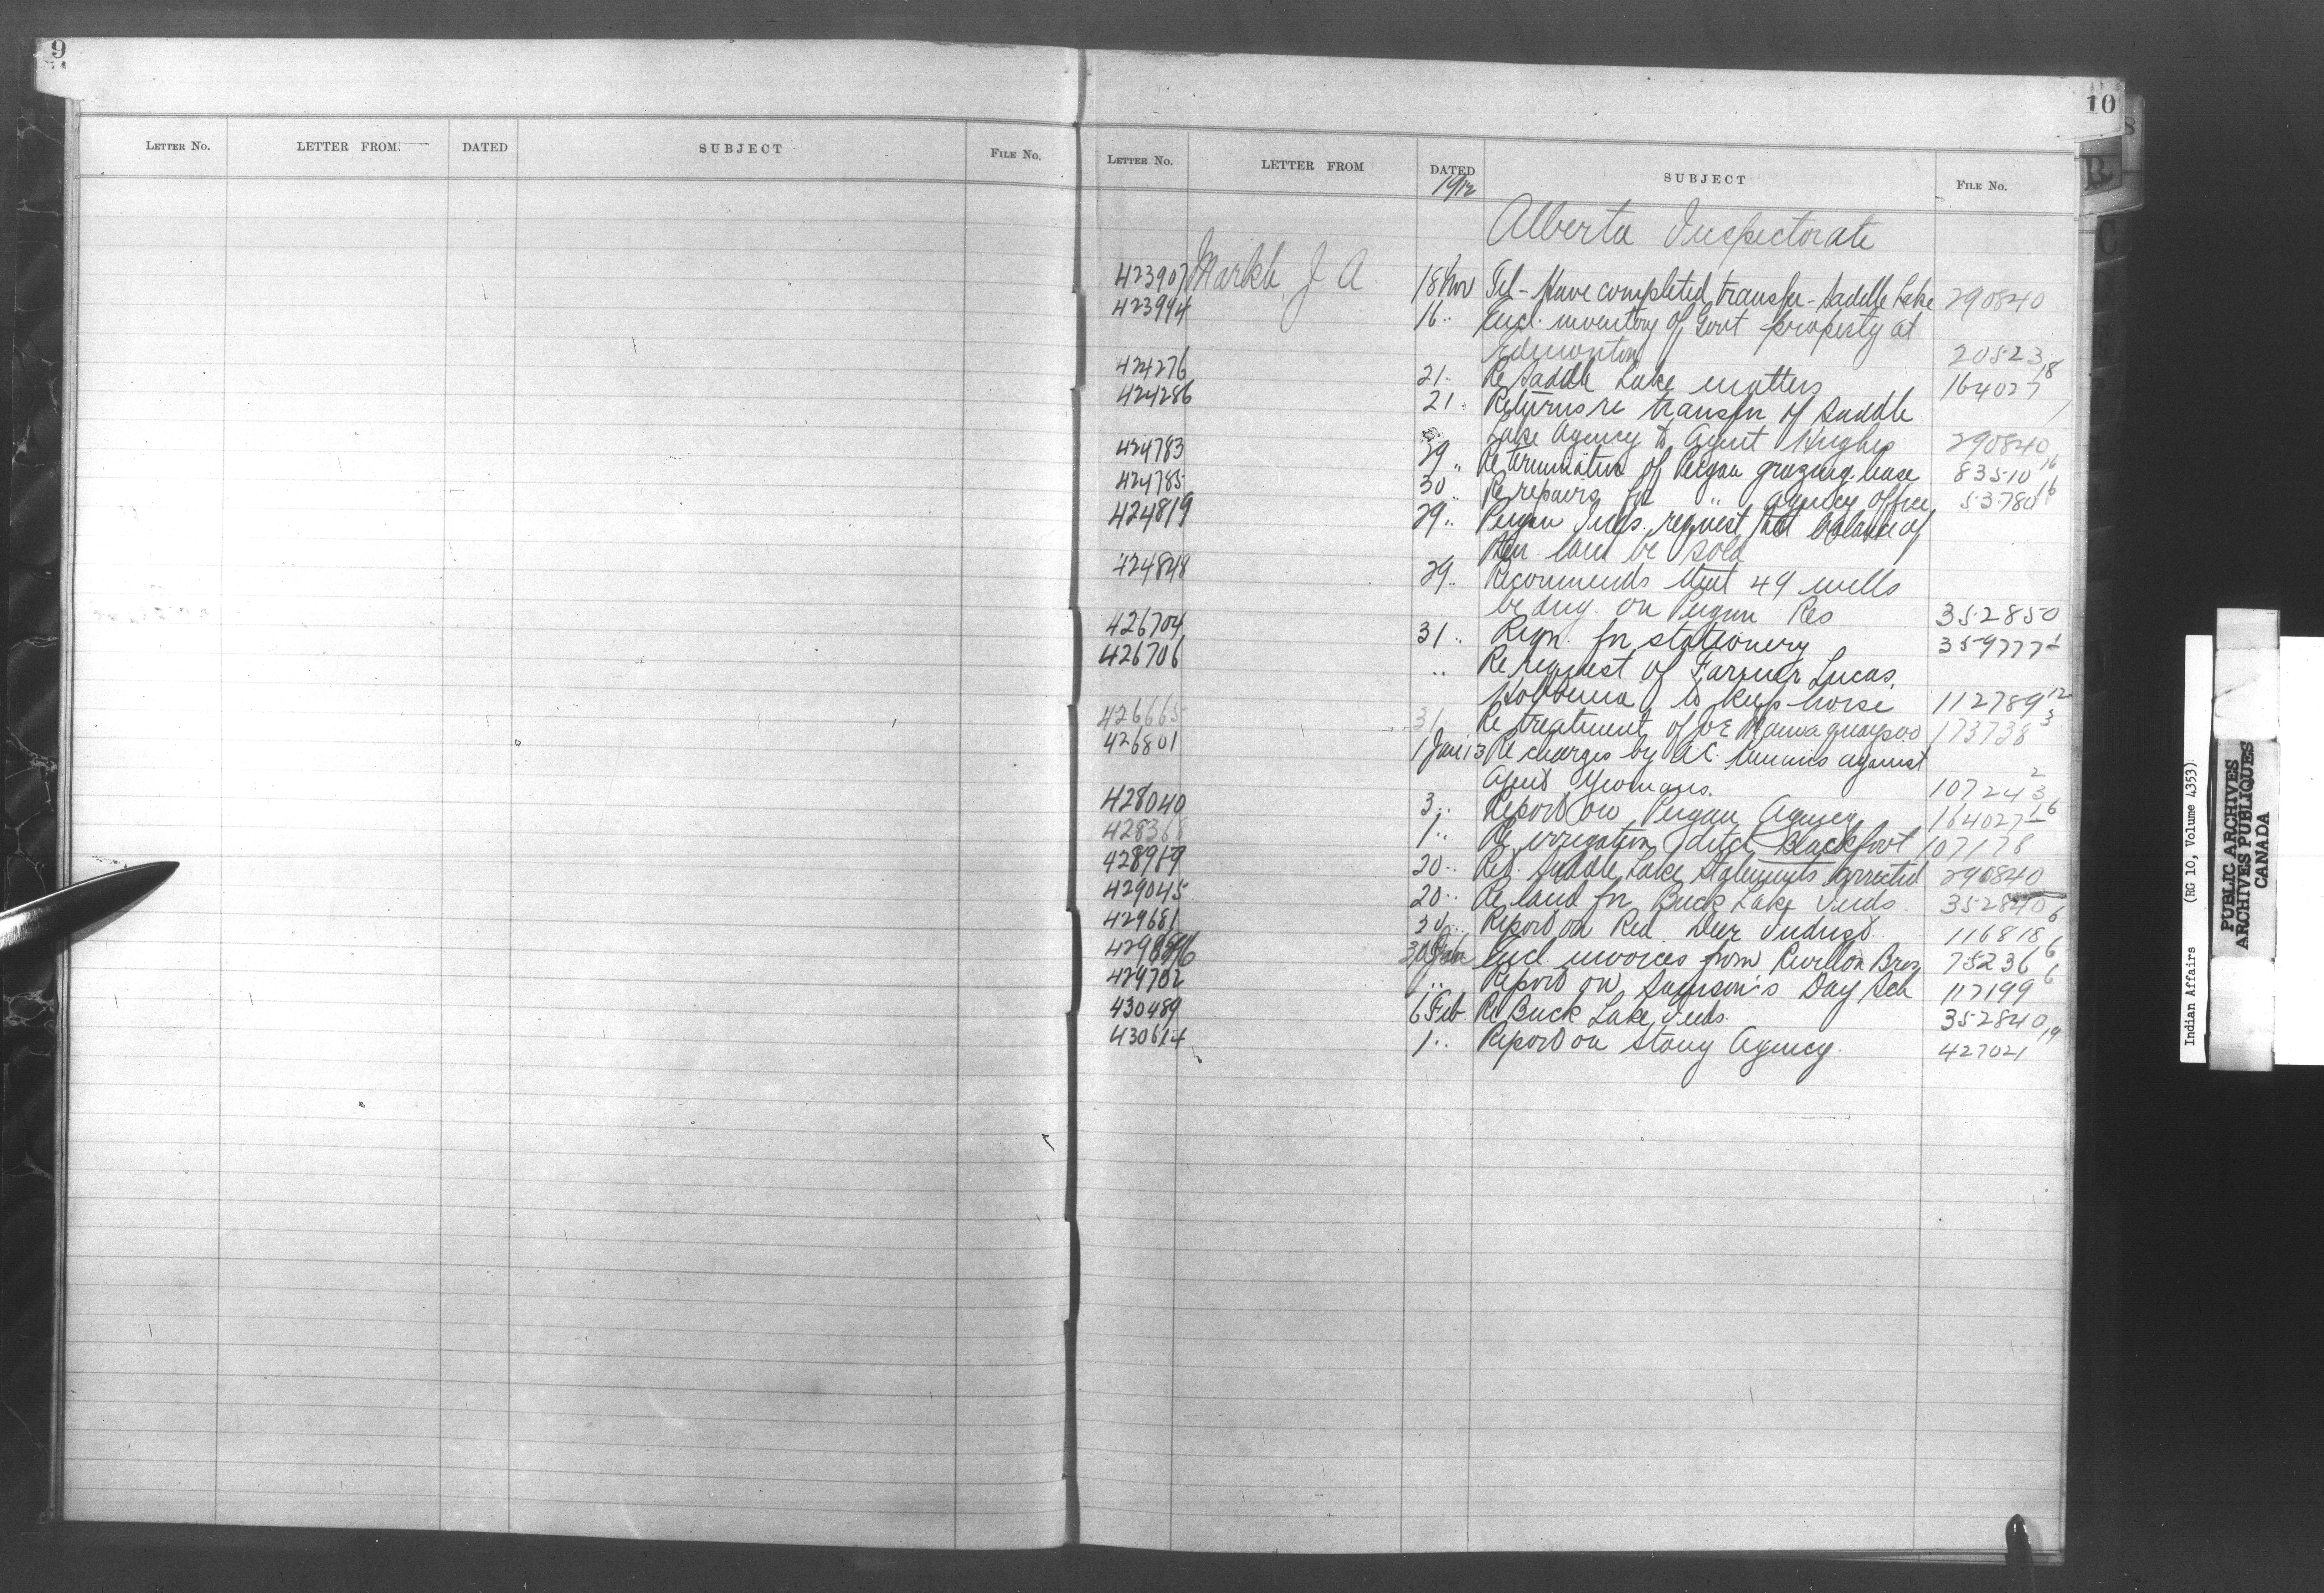 9
LETTER NO. LETTER FROM. DATED SUBJECT FILE NO.
10
LETTER NO. LETTER FROM DATED SUBJECT FILE NO.
1912
Alberta Inspectorate
423907 Markle, J. A. 18 Nov Tel - Have completed transfer - Saddle Lake 290840
423994 16 .. Encl. inventory of Govt property at
Edmonton 20523
424276 21 .. Re Saddle Lake matters 164027 18
424286 21 .. Returns re transfer of Saddle
Lake Agency to Agent Hughes 290840
424783 29 .. Re termination of Peigan grazing lease 83510 16
424785 30 .. Re repairs for " Agency office 53780 16
424819 29 .. Peigan Inds. request that balance of
their land be sold
424848 29 .. Recommends that 49 wells
be dug on Peigan Res 352850
426704 31 .. Reqn. for stationery 359777 1
426706 .. Re request of Farmer Lucas,
Hobbema, to keep horse 112789 12
426665 31 .. Re treatment of Joe 173738 3
426801 1 Jan 13 Re charges by A.C. against
Agent Yeomans. 107243 2
428040 3 .. Report on Peigan Agency 164027 16
428368 1 .. Re irrigation ditch Blackfoot 107178
428989 20 .. Ret. Saddle Lake Statements corrected 290840
429045 20 .. Re land for Buck Lake Inds. 352840
429681 30 .. Report on Red Deer Indust. 116818 6
30 Jan Encl. invoices from Revillon Bros 75236 6
429702 .. Report on Samson's Day Sch 117199 6
430489 6 Feb. Re Buck Lake Inds. 352840
430614 1 .. Report on Stony Agency. 427021 19
B
C
Indian Affairs (RG 10, Volume 4353)
PUBLIC ARCHIVES
ARCHIVES PUBLIQUES
CANADA